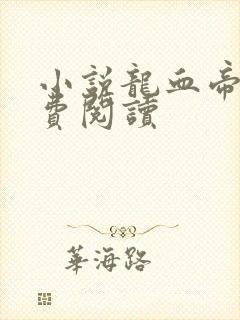 小説龍血帝
費閱讀
華海路